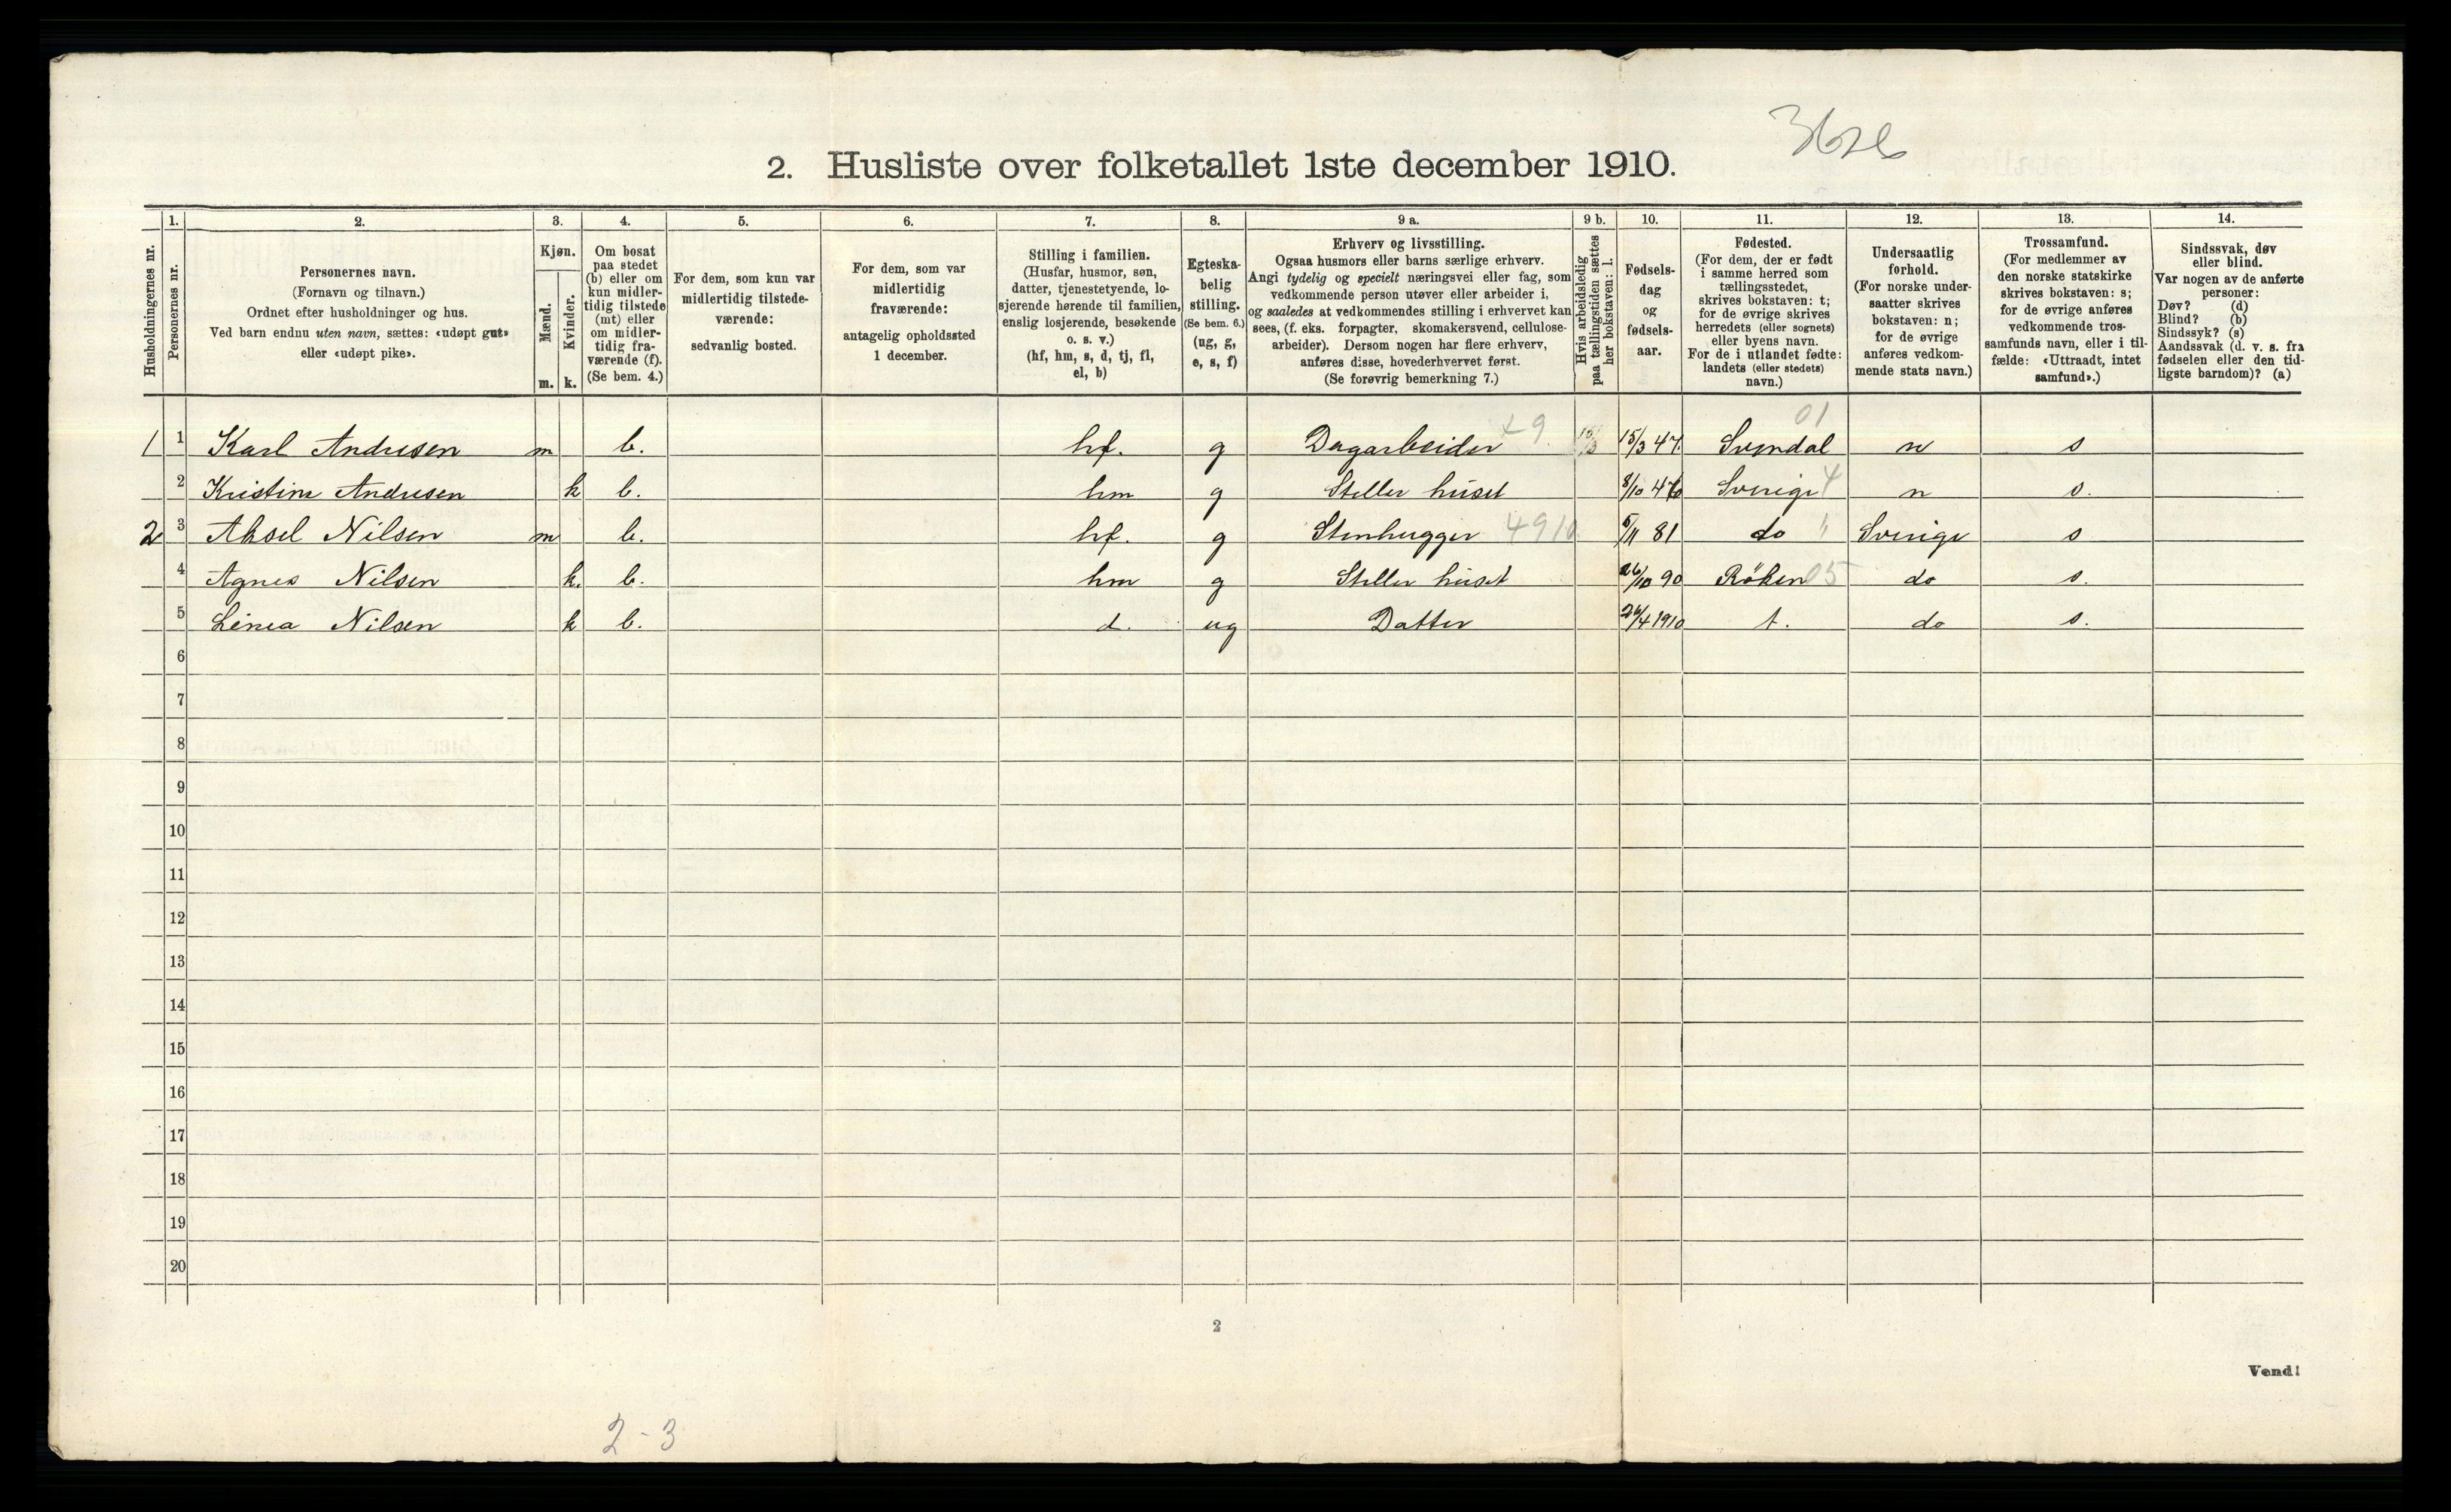 3626
2. Husliste over folketallet 1ste december 1910.
Husholdningernes nr.
1.
Personernes nr.
2.
Personernes navn.
(Fornavn og tilnavn.)
Ordnet efter husholdninger og hus.
Ved barn endnu uten navn, sættes: «udøpt gut»
eller «udøpt pike».
3.
Kjøn.
Mænd.
m.
Kvinder.
k.
4.
Om bosat
paa stedet
(b) eller om
kun midler-
tidig tilstede
(mt) eller
om midler-
tidig fra-
værende (f).
(Se bem. 4.)
5.
For dem, som kun var
midlertidig tilstede-
værende:
sedvanlig bosted.
6.
For dem, som var
midlertidig
fraværende:
antagelig opholdssted
1 december.
7.
Stilling i familien.
(Husfar, husmor, søn,
datter, tjenestetyende, lo-
sjerende hørende til familien,
enslig losjerende, besøkende
o. s. v.)
(hf, hm, s, d, tj, fl,
el, b)
8.
Egteska-
belig
stilling.
(Se bem. 6.)
(ug, g,
e, s, f)
9 a.
Erhverv og livsstilling.
Ogsaa husmors eller barns særlige erhverv.
Angi tydelig og specielt næringsvei eller fag, som
vedkommende person utøver eller arbeider i,
og saaledes at vedkommendes stilling i erhvervet kan
sees, (f. eks. forpagter, skomakersvend, cellulose-
arbeider). Dersom nogen har flere erhverv,
anføres disse, hovederhvervet først.
(Se forøvrig bemerkning 7.)
9 b.
Hvis arbeidsledig
paa tællingstiden sættes
her bokstaven: l.
10.
Fødsels-
dag
og
fødsels-
aar.
11.
Fødested.
(For dem, der er født
i samme herred som
tællingsstedet,
skrives bokstaven: t;
for de øvrige skrives
herredets (eller sognets)
eller byens navn.
For de i utlandet fødte:
landets (eller stedets)
navn.)
12.
Undersaatlig
førhold.
(For norske under-
saatter skrives
bokstaven: n;
for de øvrige
anføres vedkom-
mende stats navn.)
13.
Trossamfund.
(For medlemmer av
den norske statskirke
skrives bokstaven: s;
for de øvrige anføres
vedkommende tros-
samfunds navn, eller i til-
fælde: «Uttraadt, intet
samfund».)
14.
Sindssvak, døv
eller blind.
Var nogen av de anførte
personer:
Døv? (d)
Blind? (b)
Sindssyk? (s)
Aandssvak (d. v. s. fra
fødselen eller den tid-
ligste barndom)? (a)
01
1 1 Karl Andresen m b. hf. g Dagarbeider 49 15/3 47. Svendal n s
2 Kristine Andresen k b. hm g Steller huset 8/10 46 Sverige 4 n s.
2 3 Aksel Nilsen m b. hf. g Stenhugger 4910 5/11 81 do " Sverige s
4 Agnes Nilsen k. b. hm g Steller huset 26/10 90 Röken 05 do s.
5 Linea Nilsen k b. d. ug Datter 24/4 1910 t. do s.
6
7
8
9
10
11
12
13
14
15
16
17
18
19
20
2
Vend!
2-3